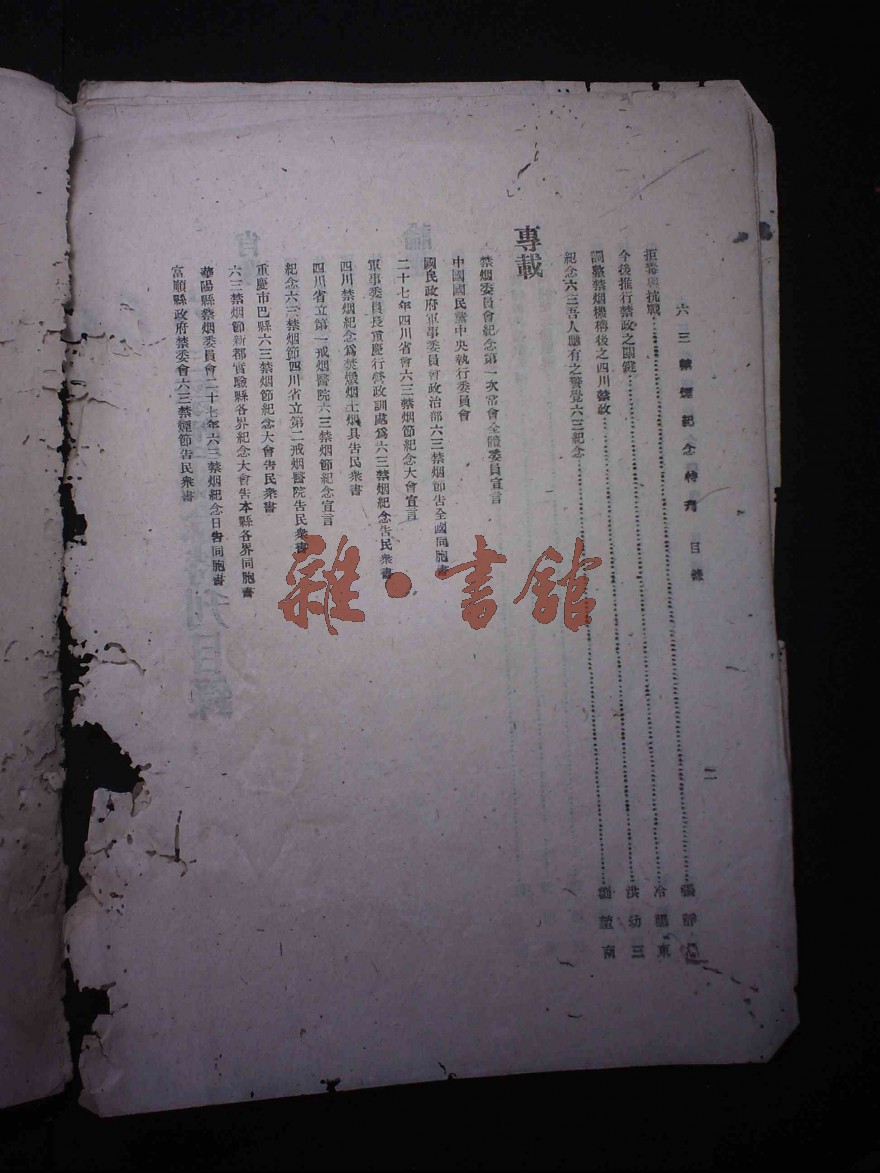 六三禁煙紀念特刊 目錄 二
拒毒與抗戰……張靜
今後推行禁政之關鍵……冷東
調整禁烟機構後之四川禁政……洪幼三
紀念六三吾人應有之警覺六三紀念……劉南
專載
禁烟委員會紀念第一次常會全體委員宣言
中國國民黨中央執行委員會
國民政府軍事委員會政治部六三禁烟節告全國同胞書
二十七年四川省會六三禁烟節紀念大會宣言
軍事委員長重慶行營政訓處為六三禁烟紀念告民衆書
四川禁烟紀念為焚燬烟土烟具告民衆書
四川省立第一戒烟醫院六三禁烟節紀念宣言
紀念六三禁烟節四川省立第二戒烟醫院告民衆書
重慶市巴縣六三禁烟節紀念大會告民衆書
六三禁烟節新都實驗縣各界紀念大會告本縣各界同胞書
華陽縣禁烟委員會二十七年六三禁烟紀念日告同胞書
富順縣政府禁委會六三禁煙節告民衆書
雜·書館